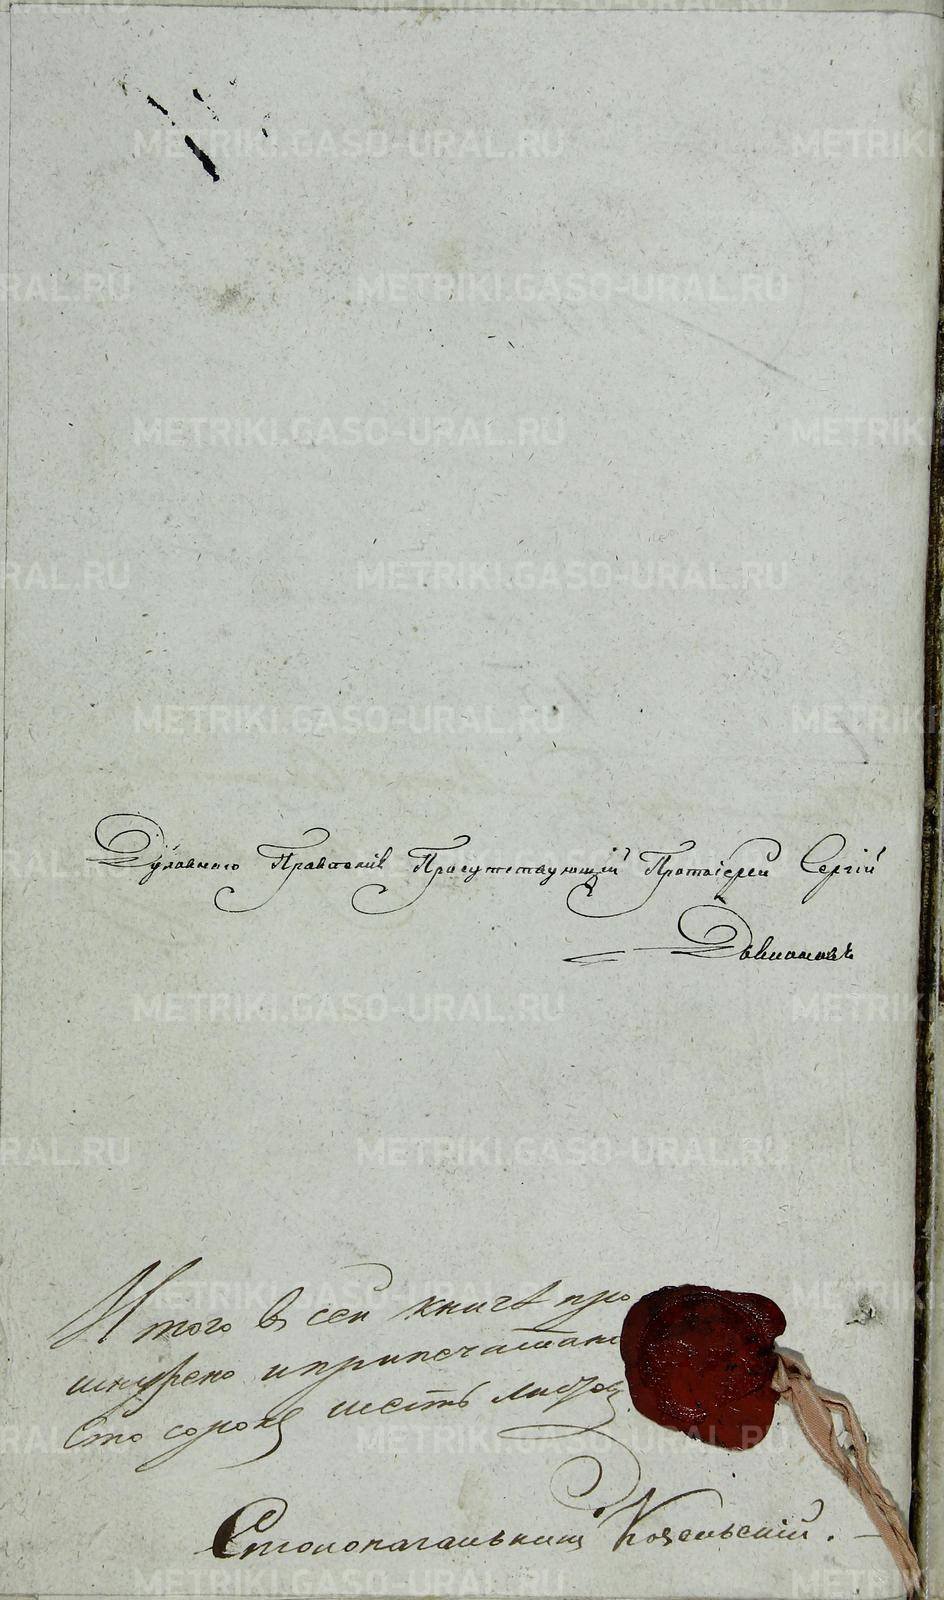 Духовного Правленія Присутствующій Протоіерей Сергій
Итого в сей книге про
шнурено и припечатано
сто сорокъ шесть листовъ
Столоначальникъ Козельскій.
METRIKI.GASO-URAL.RU